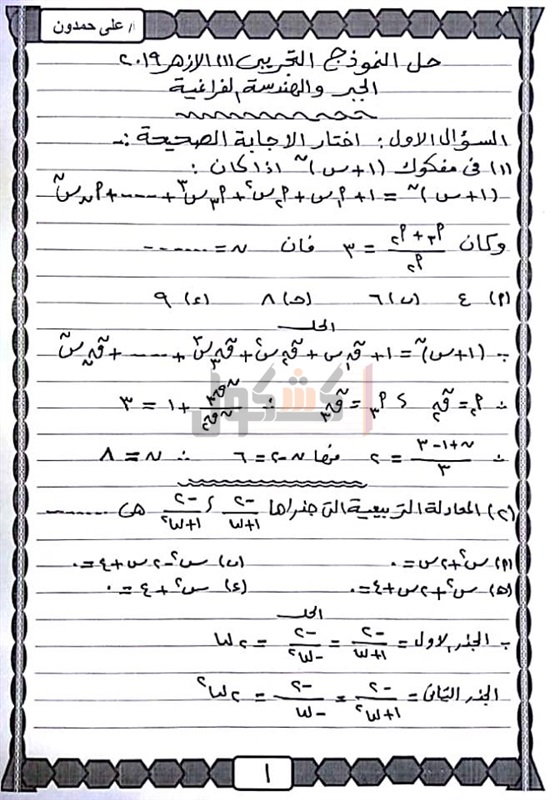 أ/ على حمدون
حل النموذج التجريبى (١) الازهر ٢٠١٩
الجبر والهندسة الفراغية
السؤال الاول : اختار الاجابة الصحيحة :-
(١) فى مفكوك (١+س)ⁿ اذا كان :
(١+س)ⁿ = ١ + أ₁س + أ₂س² + أ₃س³ + ---- + أₙسⁿ
وكان (أ₃ + أ₂)/أ₂ = ٣ فان ن = -------
(أ) ٤ (ب) ٦ (جـ) ٨ (ء) ٩
الحل
∵ (١+س)ⁿ = ١ + ⁿق₁س + ⁿق₂س² + ⁿق₃س³ + ---- + ⁿقₙسⁿ
∴ أ₂ = ⁿق₂ ، أ₃ = ⁿق₃ ∴ ⁿق₃/ⁿق₂ + ١ = ٣
كشكول
∴ (ن - ٣ + ١)/٣ = ٢ منها ن - ٢ = ٦ ∴ ن = ٨
(٢) المعادلة التربيعية التى جذراها -٢/(١+ω) ، -٢/(١+ω²) هى --------
(أ) س² + ٢س = ٠ (ب) س² - ٢س + ٤ = ٠
(جـ) س² + ٢س + ٤ = ٠ (ء) س² + ٤ = ٠
الحل
∵ الجذر الاول = -٢/(١+ω) = -٢/-ω² = ٢ω
الجذر الثانى = -٢/(١+ω²) = -٢/-ω = ٢ω²
١